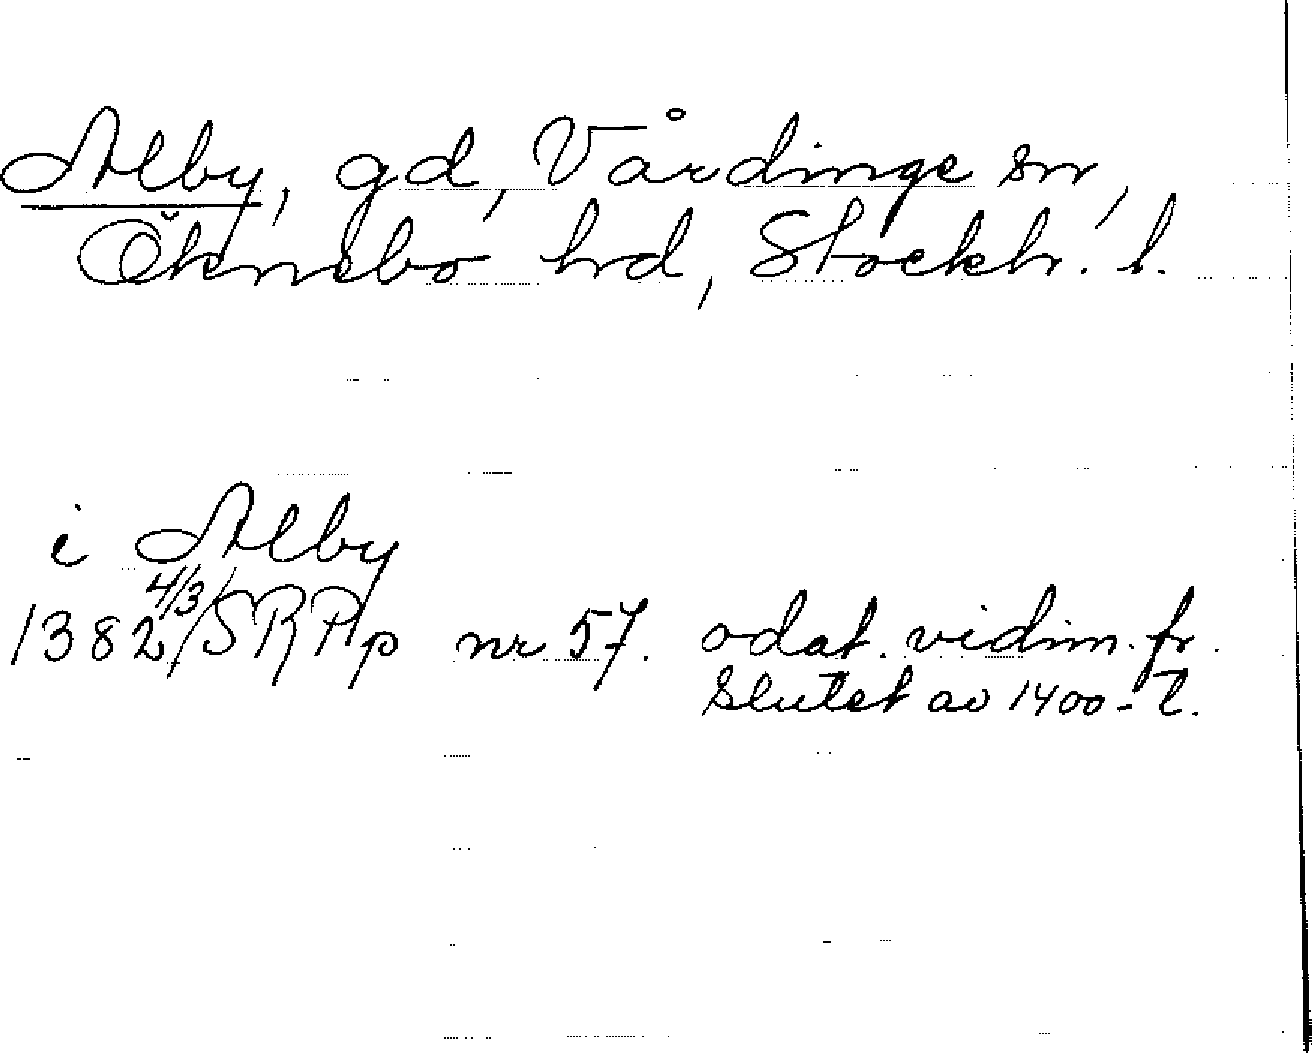 Alby, gd, Vårdinge sn,
Öknebo hd, Stockh. l.
i Alby
1382 4/3 SRPp nr 57. odat. vidim. fr.
slutet av 1400-t.